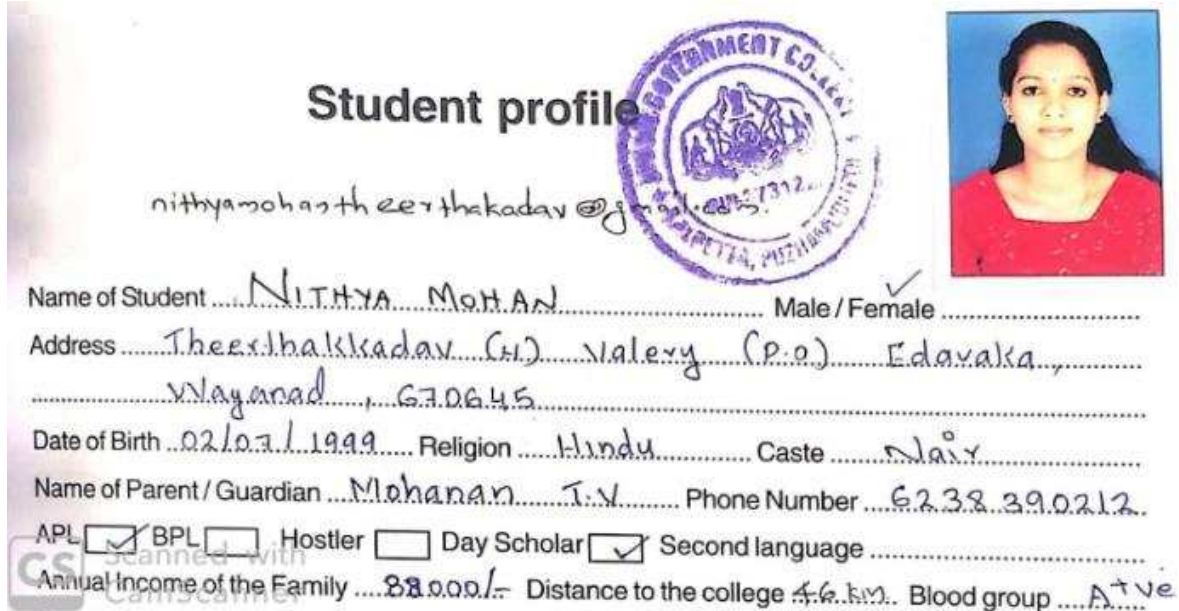 Student profile
GOVERNMENT CO
nithyamohantheerthakadav@gmail.com
Name of Student NITHYA MOHAN Male / Female
Address Theerthakkadav (H) Valery (P.O) Edavaka,
Wayanad, 670645
Date of Birth 02/07/1999 Religion Hindu Caste Nair
Name of Parent / Guardian Mohanan T.V Phone Number 6238390212
APL BPL Hostler Day Scholar Second language
CS Scanned with
Annual Income of the Family 88000/- Distance to the college 46 km Blood group A+ve
CamScanner